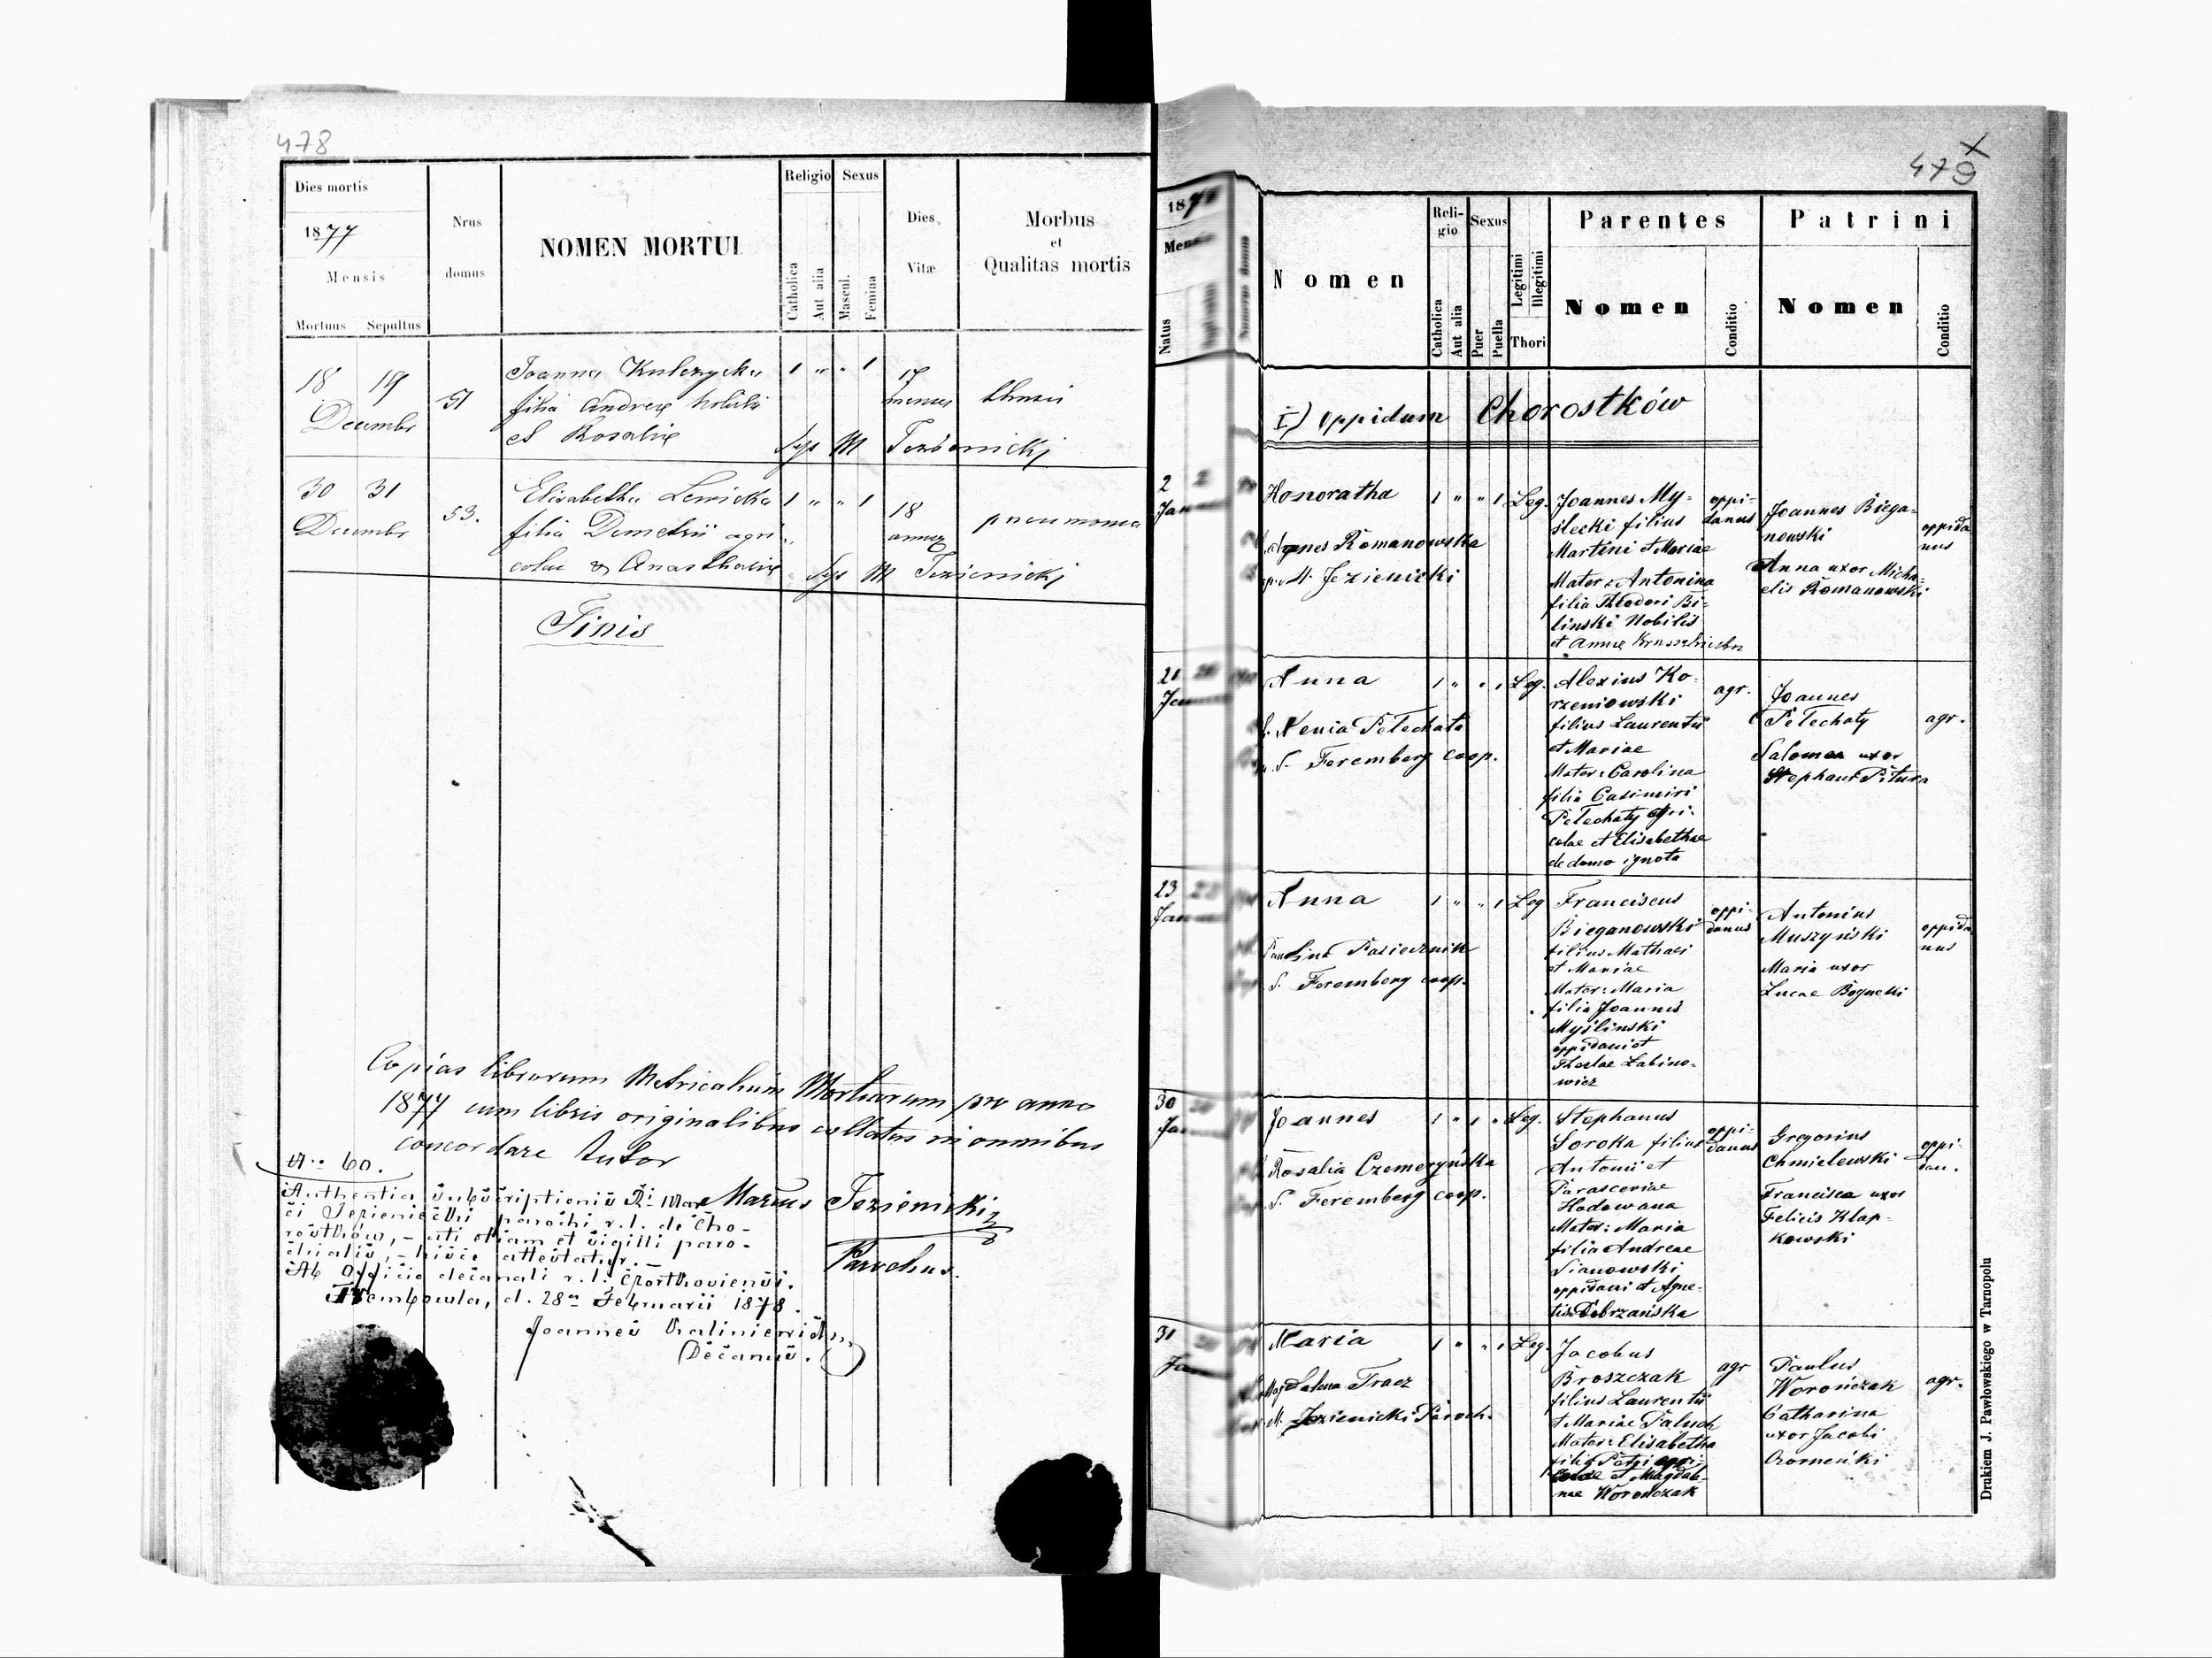 478
Dies mortis
1877
Mensis
Mortuus Sepultus
Nrus
domus
NOMEN MORTUI
Religio
Catholica
Aut alia
Sexus
Mascul.
Femina
Dies
Vitæ
Morbus
et
Qualitas mortis
18 19
Decembr
51
Joanna Kulczycka
filia Andreæ nobilis
et Rosaliæ
1 " " 1
17
menses
thusis
Sep M
30 31
Decembr
53.
Elisabetha Lewicka
filia Demetrii agri-
colae & Anasthasiæ
1 " " 1
18
annus
pneumonia
Sep M Jezienicki
Finis
Copias librorum Metricalium Mortuorum pro anno
1877 cum libris originalibus collatas in omnibus
concordare testor
N: 60.
Marcus Jezienicki
Parochus.
Authentia subscriptionis Rdi Mar
ci Jezieniecki parochi r. l. de Cho-
rostków, - uti etiam et sigilli paro-
chialis, - hisce attestatur.
Ab officio decanali r. l. Czortkoviensi.
Trembowla, d. 28a Februarii 1878.
Joannes
Decanus.
479
1878
Mensis
Natus
Numerus domus
Nomen
Reli-
gio
Catholica
Aut alia
Sexus
Puer
Puella
Legitimi
Illegitimi
Thori
Parentes
Nomen
Conditio
Patrini
Nomen
Conditio
I) Oppidum Chorostków
2 2
Honoratha
Agnes Romanowska
M. Jezienicki
1 " " 1 Leg.
Joannes My-
ślecki filius
Martini et Mariae
Mater: Antonina
filia Theodori Bi-
linski Nobilis
et Annae
oppi-
danus
Joannes Biega-
nowski
Anna uxor Micha-
elis Romanowski
oppida
nus
21
Anna
Xenia Pełechata
S. Feremberg coop.
1 " " 1 Leg.
Alexius Ko-
rzeniowski
filius Laurentii
et Mariae
Mater: Carolina
filia Casimiri
Pełechaty agri-
colae et Elisabethae
de domo ignota
agr.
Joannes
Pełechaty
Salomea uxor
Stephani Pitura
agr.
23
Anna
Paulina Pasiecznik
S. Feremberg coop.
1 " " 1 Leg
Franciscus
Bieganowski
filius Mathaei
et Mariae
Mater: Maria
filia Joannis
Myślinski
oppidani et
Theclae Labino-
wicz
oppi-
danus
Antonius
Muszyński
Maria uxor
Lucae
oppida
nus
30
Joannes
Rosalia Czemeryńska
S. Feremberg coop.
1 " 1 " Leg.
Stephanus
Soroka filius
Antonii et
Parasceviae
Hodowana
Mater: Maria
filia Andreae
Sianowski
oppidani et Agne-
tis Dobrzańska
oppi-
danus
Gregorius
Chmielewski
Francisca uxor
Felicis Kłap-
kowski
oppi-
dan.
31
Maria
Magdalena Tracz
M. Jezienicki Paroch.
1 " " 1 Leg
Jacobus
Broszczak
filius Laurentii
et Mariae Paluch
Mater: Elisabetha
filia Petri agri-
colae et Magdale-
nae Worończak
agr
Paulus
Worończak
Catharina
uxor Jacobi
agr.
Drukiem J. Pawłowskiego w Tarnopolu